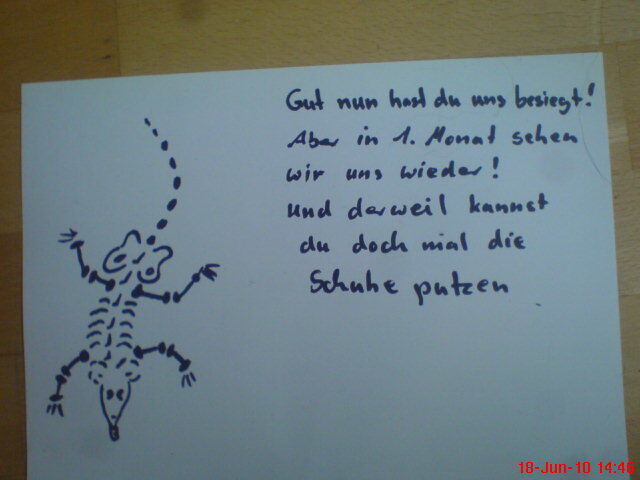 Gut nun hast du uns besiegt!
Aber in 1. Monat sehen
wir uns wieder!
Und derweil kannst
du doch mal die
Schuhe putzen
18-Jun-10 14:46